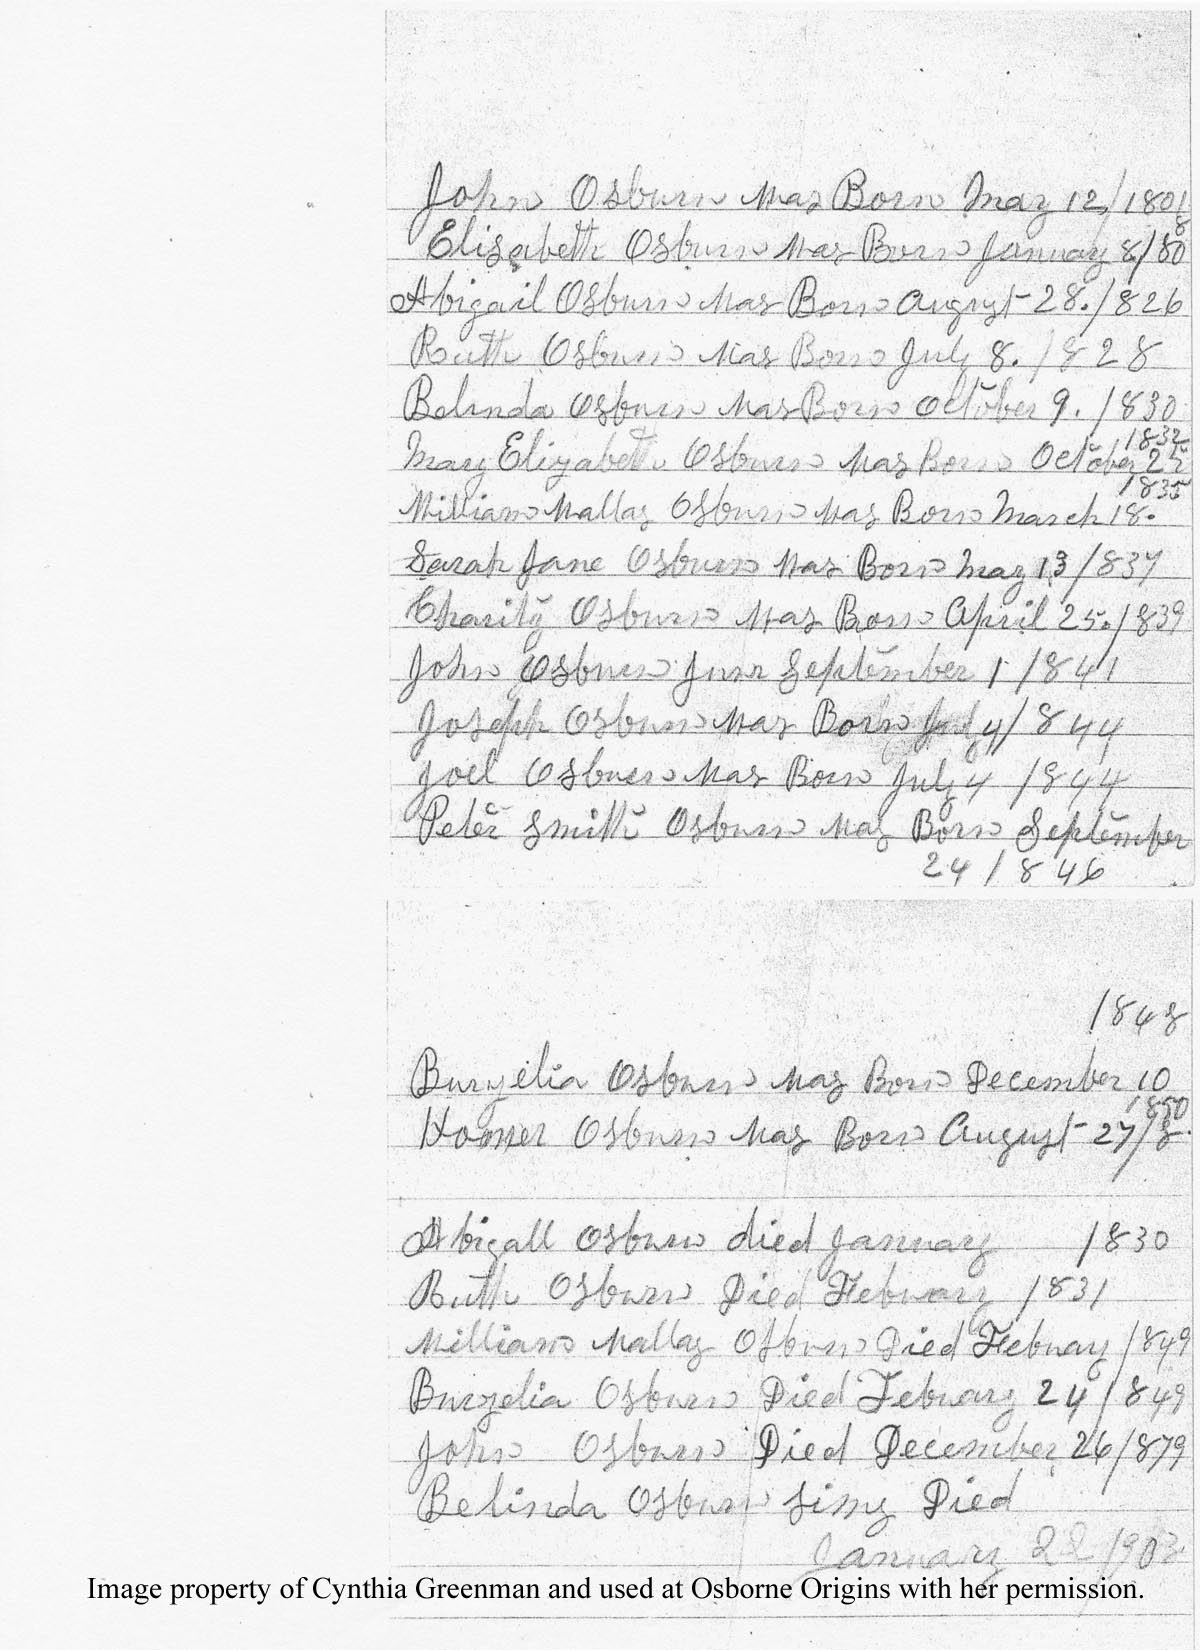 John Osburn Was Born May 12/1801
8
Elizabeth Osburn Was Born January 8/80
Abigail Osburn Was Born August 28. 1826
Ruth Osburn Was Born July 8. 1828
Belinda Osburn Was Born October 9. 1830
1832
Mary Elizabeth Osburn Was Born October 25
1835
William Wallas Osburn Was Born March 18.
Sarah Jane Osburn Was Born May 13 1837
Charity Osburn Was Born April 25. 1839
John Osburn Junr September 1 1841
Joseph Osburn Was Born July 4/ 844
Joel Osburn Was Born July 4 1844
Peter Smith Osburn Was Born September
24 1846
1848
Burzelia Osburn Was Born December 10
1850
Homer Osburn Was Born August 27/8.
Abigall Osburn died January 1830
Ruth Osburn Died February 1831
William Wallas Osburn Died Februay 1849
Burzelia Osburn Died Februarz 24 1849
John Osburn Died December 26 1879
Belinda Osburn Died
January 22 1903
Image property of Cynthia Greenman and used at Osborne Origins with her permission.